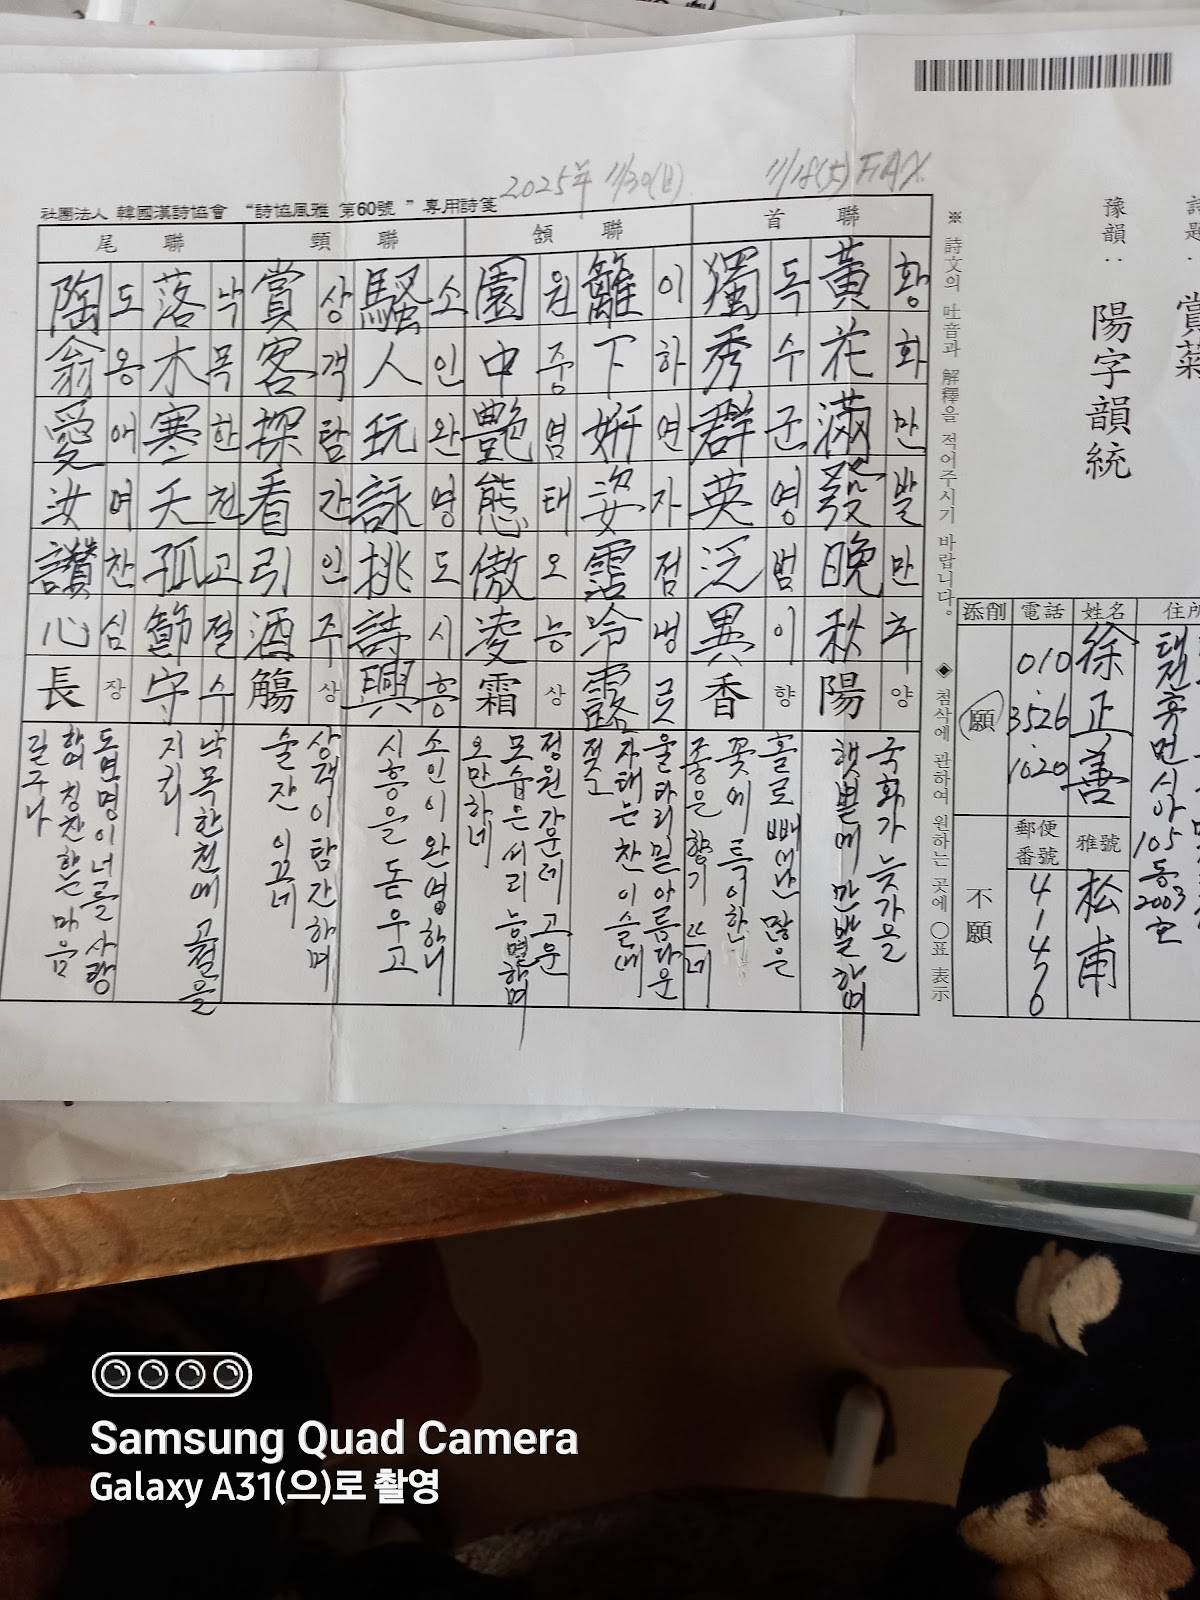 2025年 11/30(日)
11/18(火) FAX
社團法人 韓國漢詩協會 “詩協風雅 第60號 ” 専用詩箋
賞菊
豫韻 : 陽字韻統
※ 詩文의 吐音과 解釋을 적어주시기 바랍니다.
◈ 첨삭에 관하여 원하는 곳에 ○표 表示
首聯
黃황花화滿만發발晩만秋추陽양
獨독秀수群군英영泛범異이香향
頷聯
籬이下하姸연姿자霑점冷냉露로
園원中중艶염態태傲오凌능霜상
頸聯
騷소人인玩완詠영挑도詩시興흥
賞상客객探탐看간引인酒주觴상
尾聯
落낙木목寒한天천孤고節절守수
陶도翁옹愛애汝여讚찬心심長장
국화가 늦가을
햇볕에 만발하며
홀로 빼어난 많은
꽃에 특이한
좋은 향기 뜨네
울타리밑 아름다운
자태는 찬 이슬에
젖소
정원 가운데 고운
모습은 서리 능멸하며
오만하네
소인이 완영하니
시흥을 돋우고
상객이 탐간하며
술잔 이끄네
낙목한천에 고절을
지키
도연명이 너를 사랑
하여 칭찬하는 마음
길구나
住所
105동
2003호
姓名
徐正善
雅號
松甫
電話
010.3526.1020
郵便番號
41470
添削
願
不願
Samsung Quad Camera
Galaxy A31(으)로 촬영